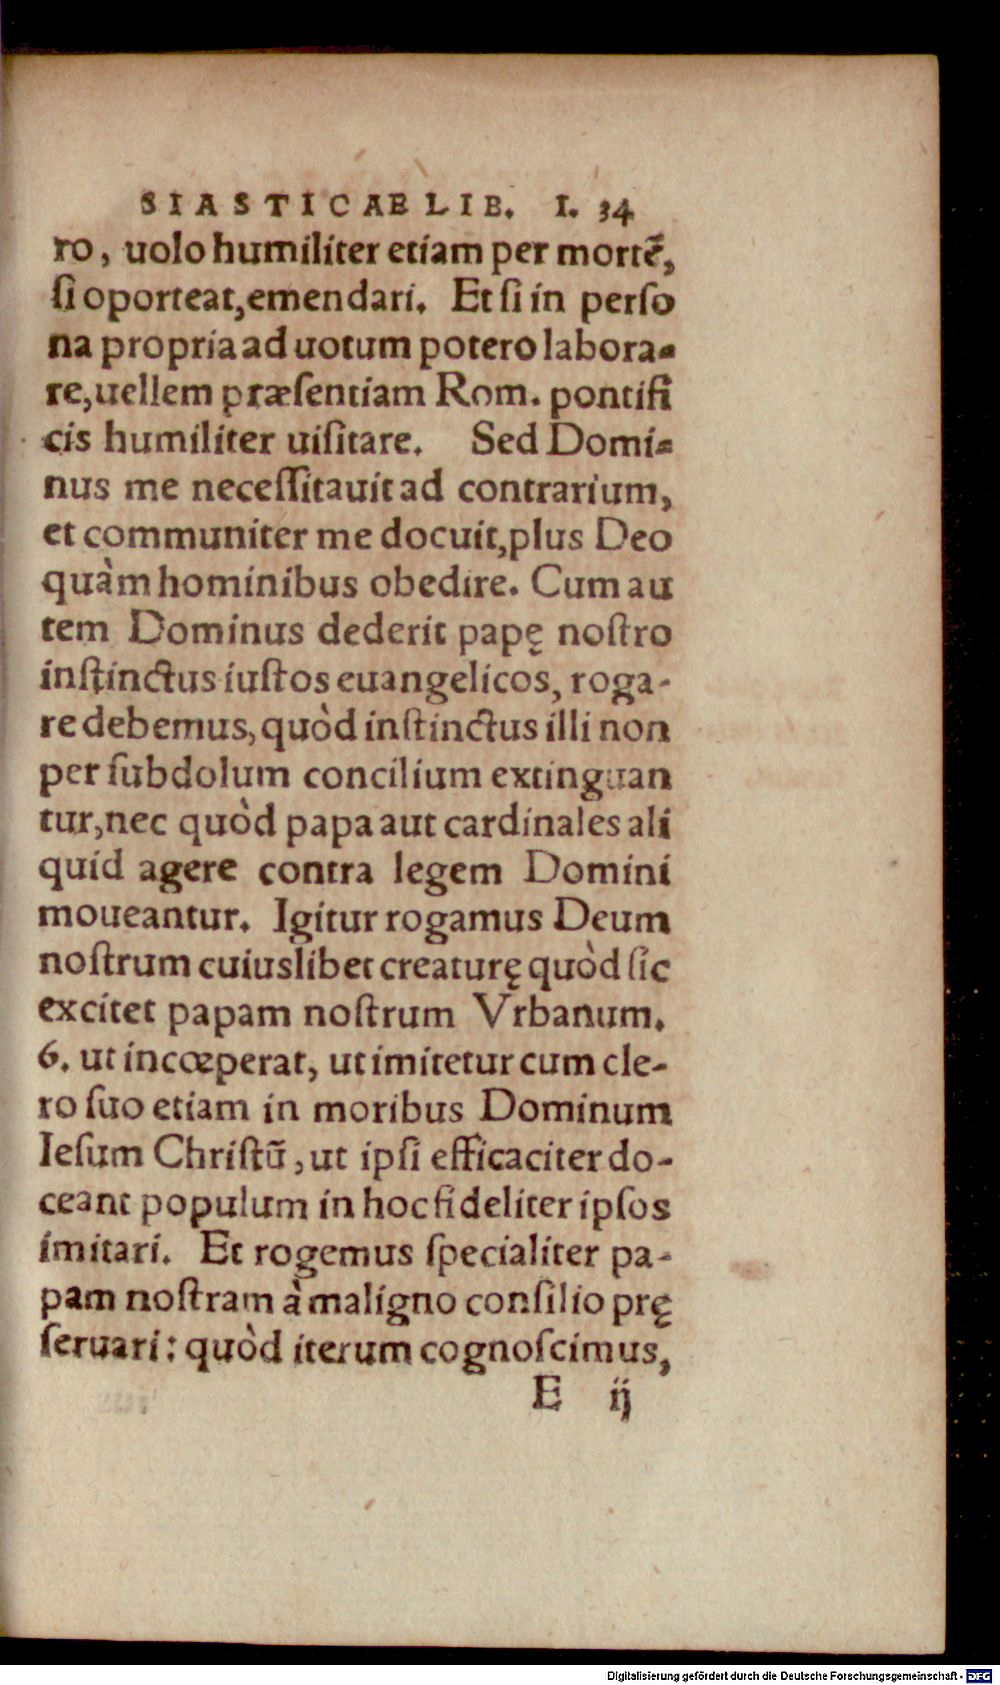 SIASTICAE LIB. I. 34
ro, uolo humiliter etiam per mortẽ,
ſi oporteat, emendari. Et ſi in perſo
na propria ad uotum potero labora-
re, uellem præſentiam Rom. pontifi
cis humiliter uiſitare. Sed Domi-
nus me neceſſitauit ad contrarium,
et communiter me docuit, plus Deo
quàm hominibus obedire. Cum au
tem Dominus dederit papę noſtro
inſtinctus iuſtos euangelicos, roga-
re debemus, quòd inſtinctus illi non
per ſubdolum concilium extinguan
tur, nec quòd papa aut cardinales ali
quid agere contra legem Domini
moueantur. Igitur rogamus Deum
noſtrum cuiuslibet creaturę quòd ſic
excitet papam noſtrum Vrbanum.
6. ut incœperat, ut imitetur cum cle-
ro ſuo etiam in moribus Dominum
Ieſum Chriſtũ, ut ipſi efficaciter do-
ceant populum in hoc fideliter ipſos
imitari. Et rogemus ſpecialiter pa-
pam noſtram à maligno conſilio prę
ſeruari: quòd iterum cognoſcimus,
E ij
Digitalisierung gefördert durch die Deutsche Forschungsgemeinschaft - DFG